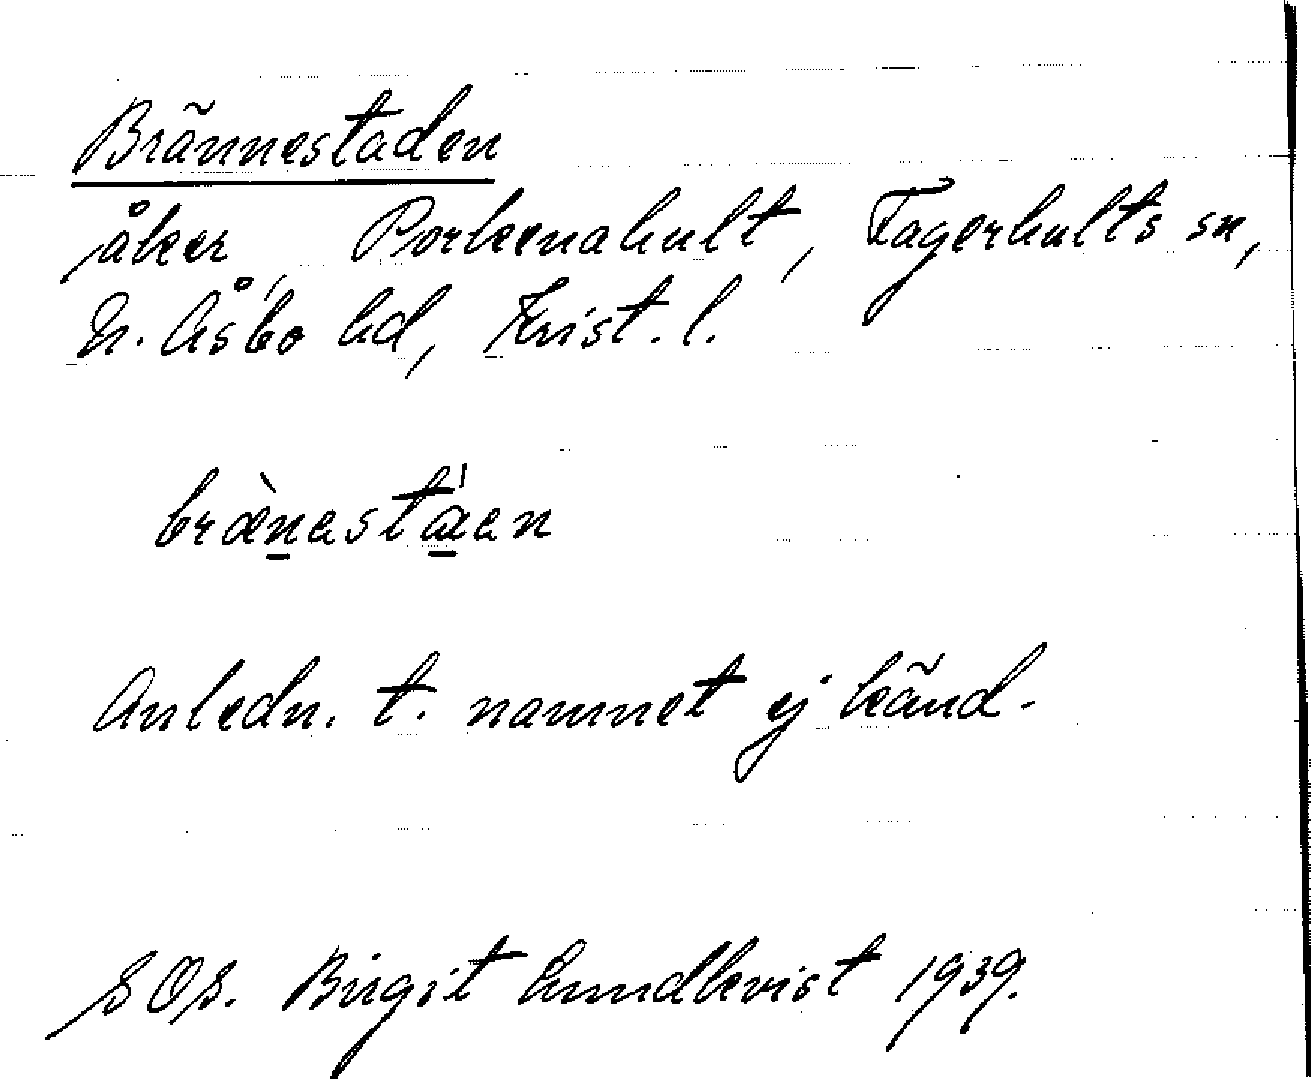 Brännestaden
åker, Porkenahult, Fagerhults sn,
N. Åsbo hd, Krist. l.
bræ̀nestáen
Anledn. t. namnet ej känd.
SOS. Birgit Lundkvist 1939.